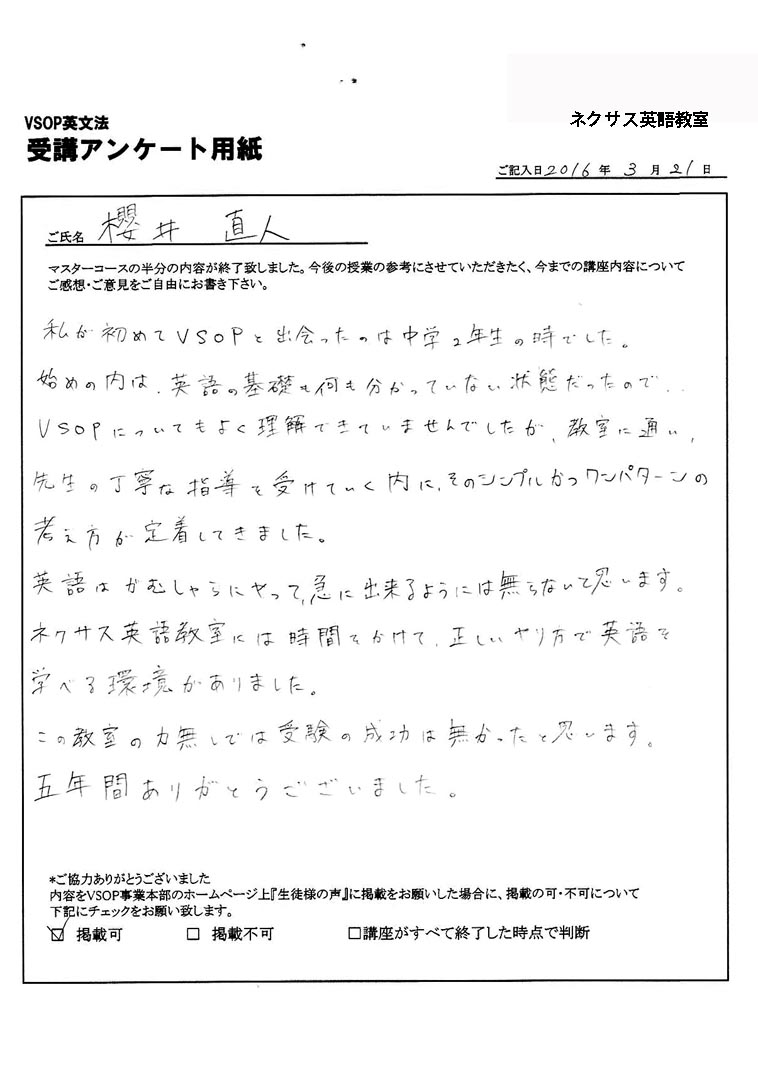 VSOP英文法
ネクサス英語教室
受講アンケート用紙
ご記入日2016年 3月21日
ご氏名 櫻井 直人
マスターコースの半分の内容が終了致しました。今後の授業の参考にさせていただきたく、今までの講座内容について
ご感想・ご意見をご自由にお書き下さい。
私が初めてVSOPと出会ったのは中学2年生の時でした。
始めの内は、英語の基礎も何も分かっていない状態だったので、
VSOPについてもよく理解できていませんでしたが、教室に通い、
先生の丁寧な指導を受けていく内に、そのシンプルかつワンパターンの
考え方が定着してきました。
英語はがむしゃらにやって、急に出来るようには無らないと思います。
ネクサス英語教室には時間をかけて、正しいやり方で英語を
学べる環境がありました。
この教室の力無しでは受験の成功は無かったと思います。
五年間ありがとうございました。
*ご協力ありがとうございました
内容をVSOP事業本部のホームページ上『生徒様の声』に掲載をお願いした場合に、掲載の可・不可について
下記にチェックをお願い致します。
☑ 掲載可 □ 掲載不可 □講座がすべて終了した時点で判断